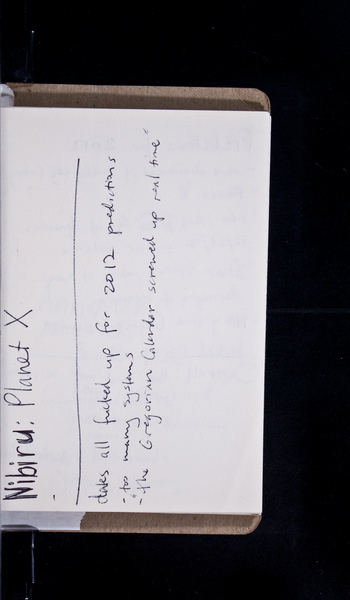 Nibiru: Planet X
-
dates all fucked up for 2012 predictions
- too many systems
- "the Gregorian Calendar screwed up real time"